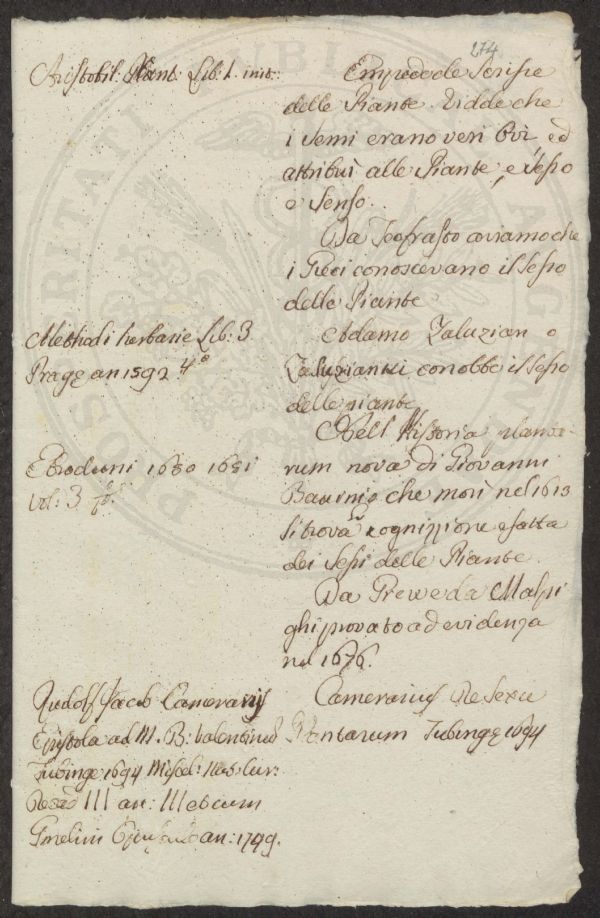 274
Aristotil: Plant: Lib: 1. init:
Empedocle Scrisse
delle Piante. Vidde che
i Semi erano veri Ovi, ed
attribuì alle Piante, e Sesso
e Senso.
Da Teofrasto aviamo che
i Greci conoscevano il Sesso
delle Piante
Methodi herbarie Lib: 3.
Pragę an 1592 4º
Adamo Zaluzian o
Zaluzianski conobbe il Sesso
delle piante
Ebroduni 1650 1651
vol: 3 fº.
Nell Historia planta-
rum nova di Giovanni
Bauinio che morì nel 1613
si trova cognizzione esatta
dei Sessi delle Piante.
Da Grew e da Malpi
ghi provato ad evidenza
nel 1676.
Rudolf Jacob Camerarij
Epistola ad M. B: Valentinus
Tubinge 1694 Miscel: Nat: Cur:
III an: III
Gmelini an: 1749.
Camerarius De Sexu
Plantarum Tubingę 1694